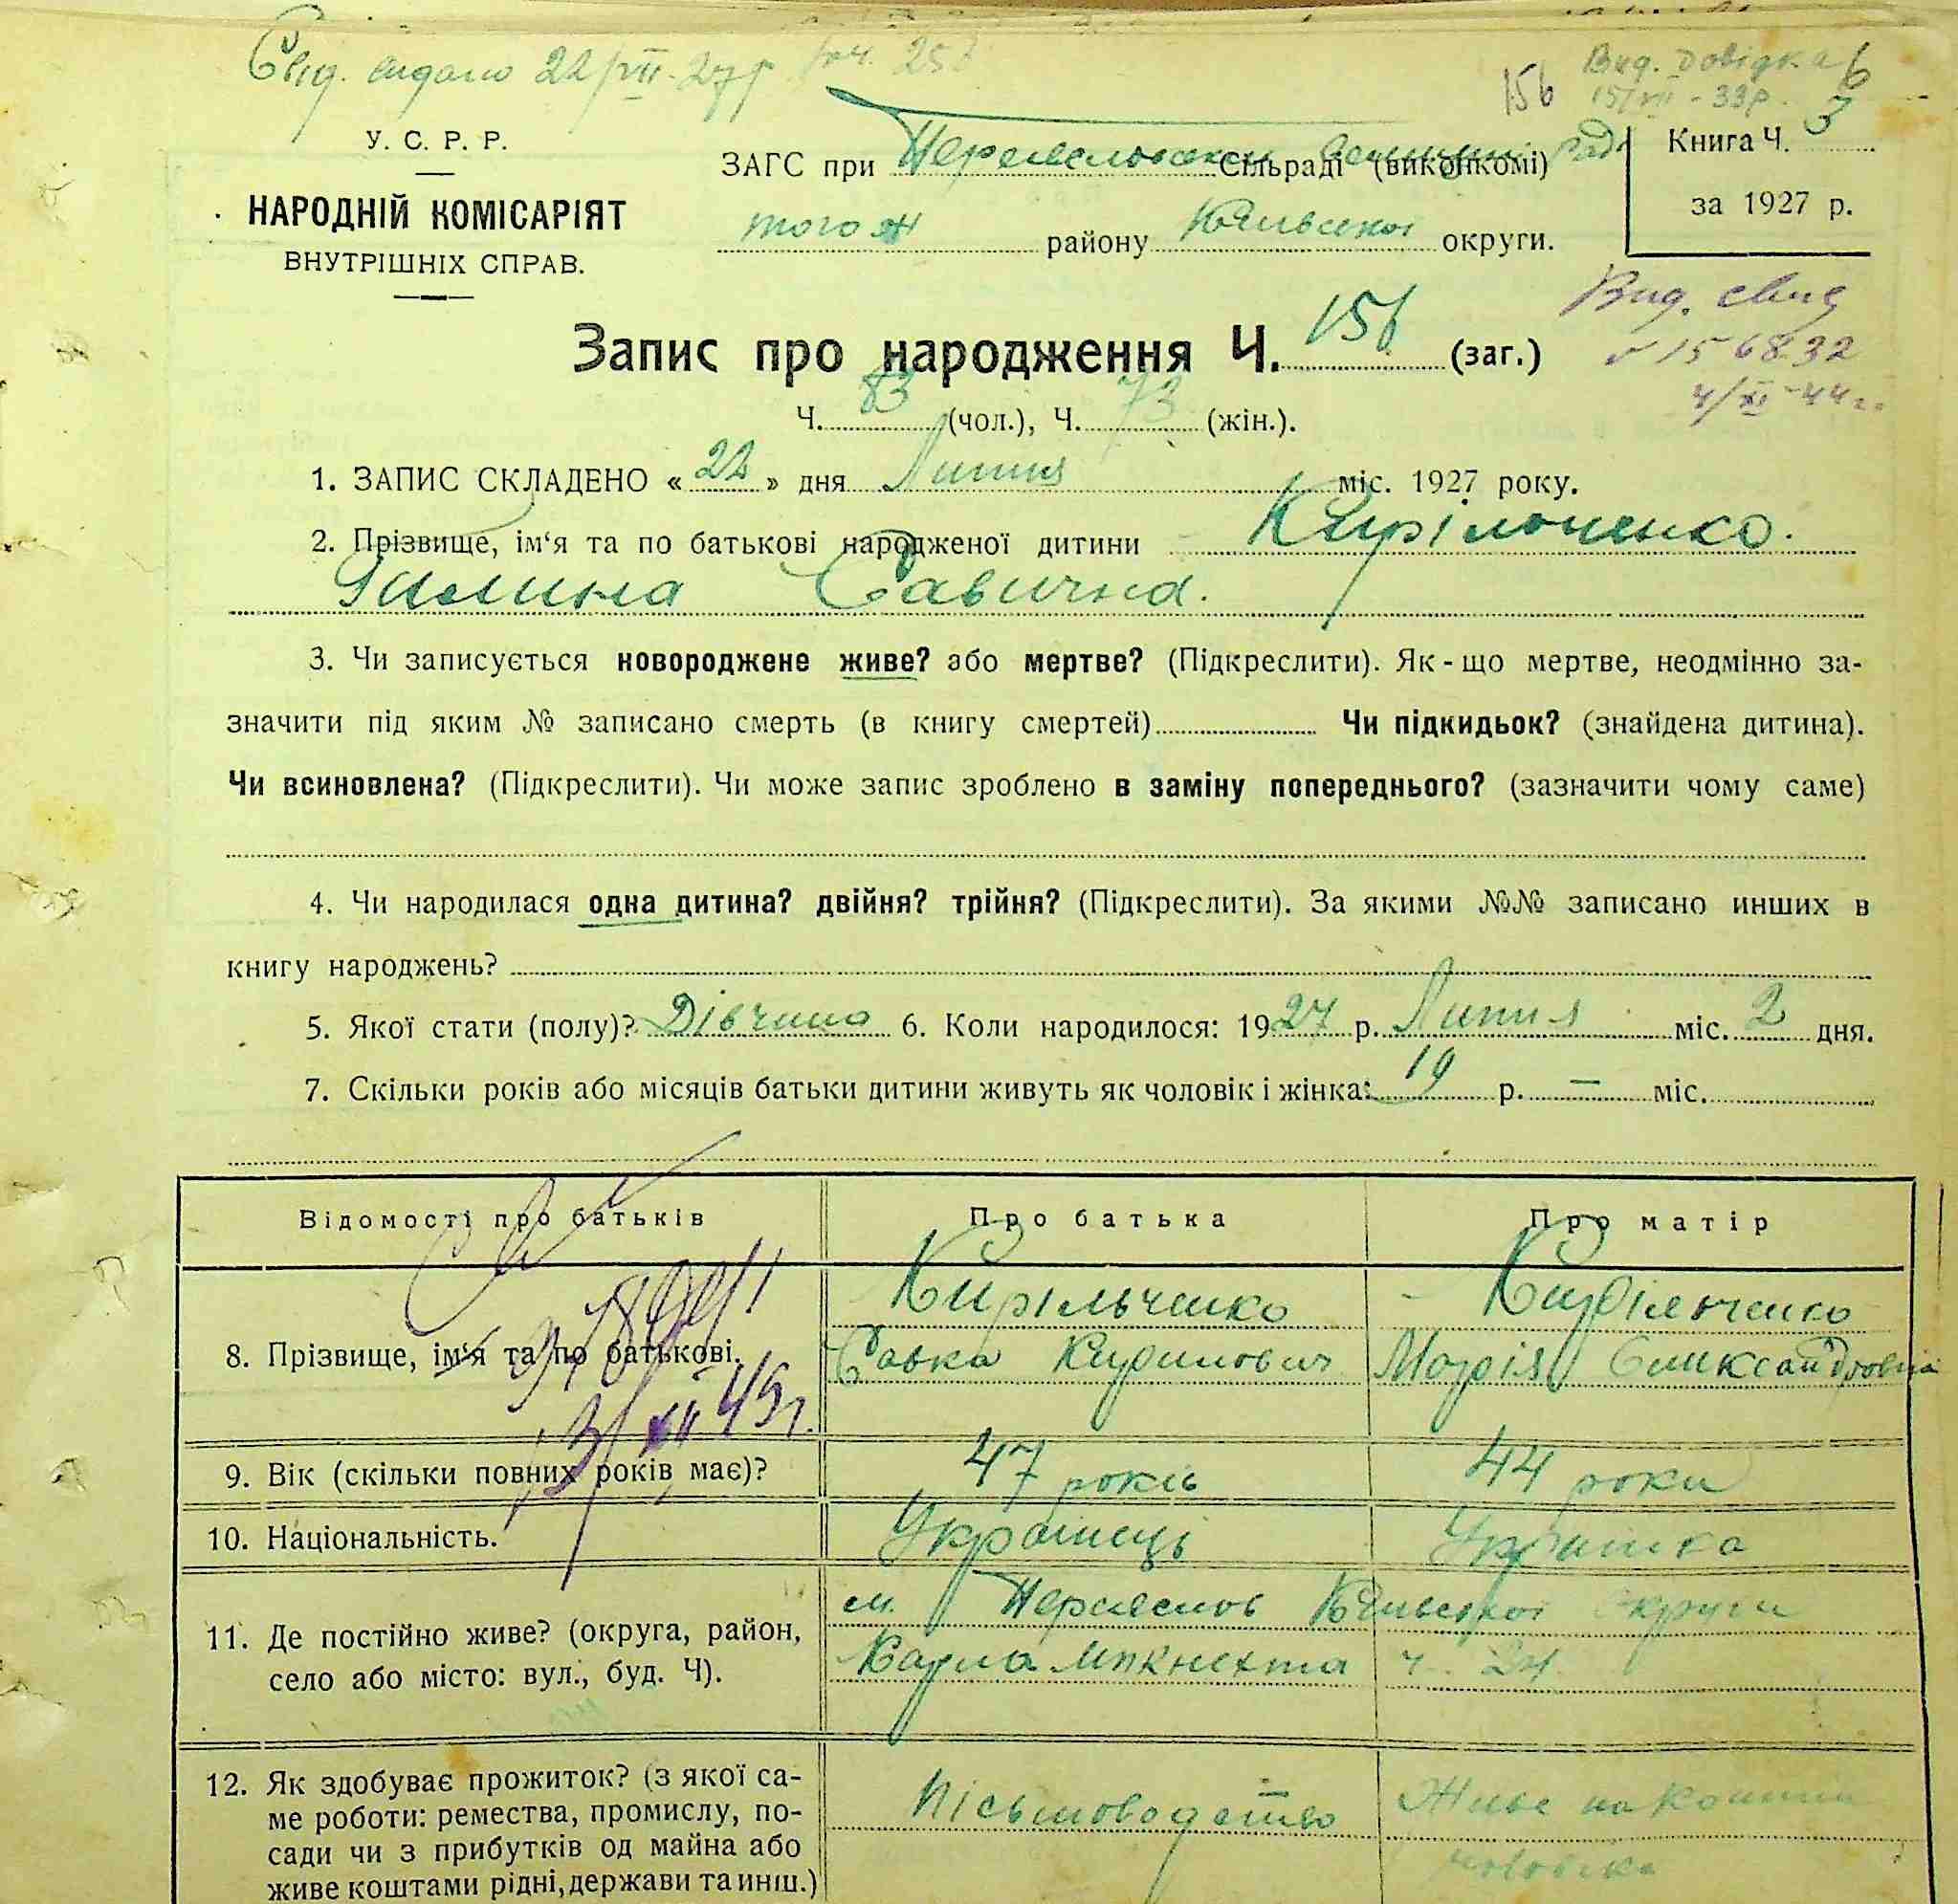 Свід. видано 22/VII-27р
Вид. Довідка
15/VII-33р.
156
У. С. Р. Р.
НАРОДНІЙ КОМІСАРІЯТ
ВНУТРІШНІХ СПРАВ.
ЗАГС при Сільраді (виконкомі)
того ж району Київської округи.
Книга Ч. 3
за 1927 р.
Вид. свид
156832
4/XI-44г.
Запис про народження Ч. 156 (заг.)
Ч. 83 (чол.), Ч. 73 (жін.).
1. ЗАПИС СКЛАДЕНО «22» дня Липня міс. 1927 року.
2. Прізвище, ім‘я та по батькові народженої дитини Кирільченко.
Галина Савична.
3. Чи записується новороджене живе? або мертве? (Підкреслити). Як-що мертве, неодмінно за-
значити під яким № записано смерть (в книгу смертей) Чи підкидьок? (знайдена дитина).
Чи всиновлена? (Підкреслити). Чи може запис зроблено в заміну попереднього? (зазначити чому саме)
4. Чи народилася одна дитина? двійня? трійня? (Підкреслити). За якими №№ записано инших в
книгу народжень?
5. Якої стати (полу)? Дівчина 6. Коли народилося: 1927 р. Липня міс. 2 дня.
7. Скільки років або місяців батьки дитини живуть як чоловік і жінка: 19 р. — міс.
Відомості про батьків Про батька Про матір
8. Прізвище, ім‘я та по батькові.
Кирільченко
Савка Кирилович
Кирільченко
Марія Олександровна
9. Вік (скільки повних років має)? 47 років 44 роки
10. Національність. Українець Українка
11. Де постійно живе? (округа, район,
село або місто: вул., буд. Ч).
м. Переяслов Київської округи
Карла Лібкнехта ч. 24
12. Як здобуває прожиток? (з якої са-
ме роботи: ремества, промислу, по-
сади чи з прибутків од майна або
живе коштами рідні, держави та инш.)
Пісьмоводство
Живе на кошти
чоловіка